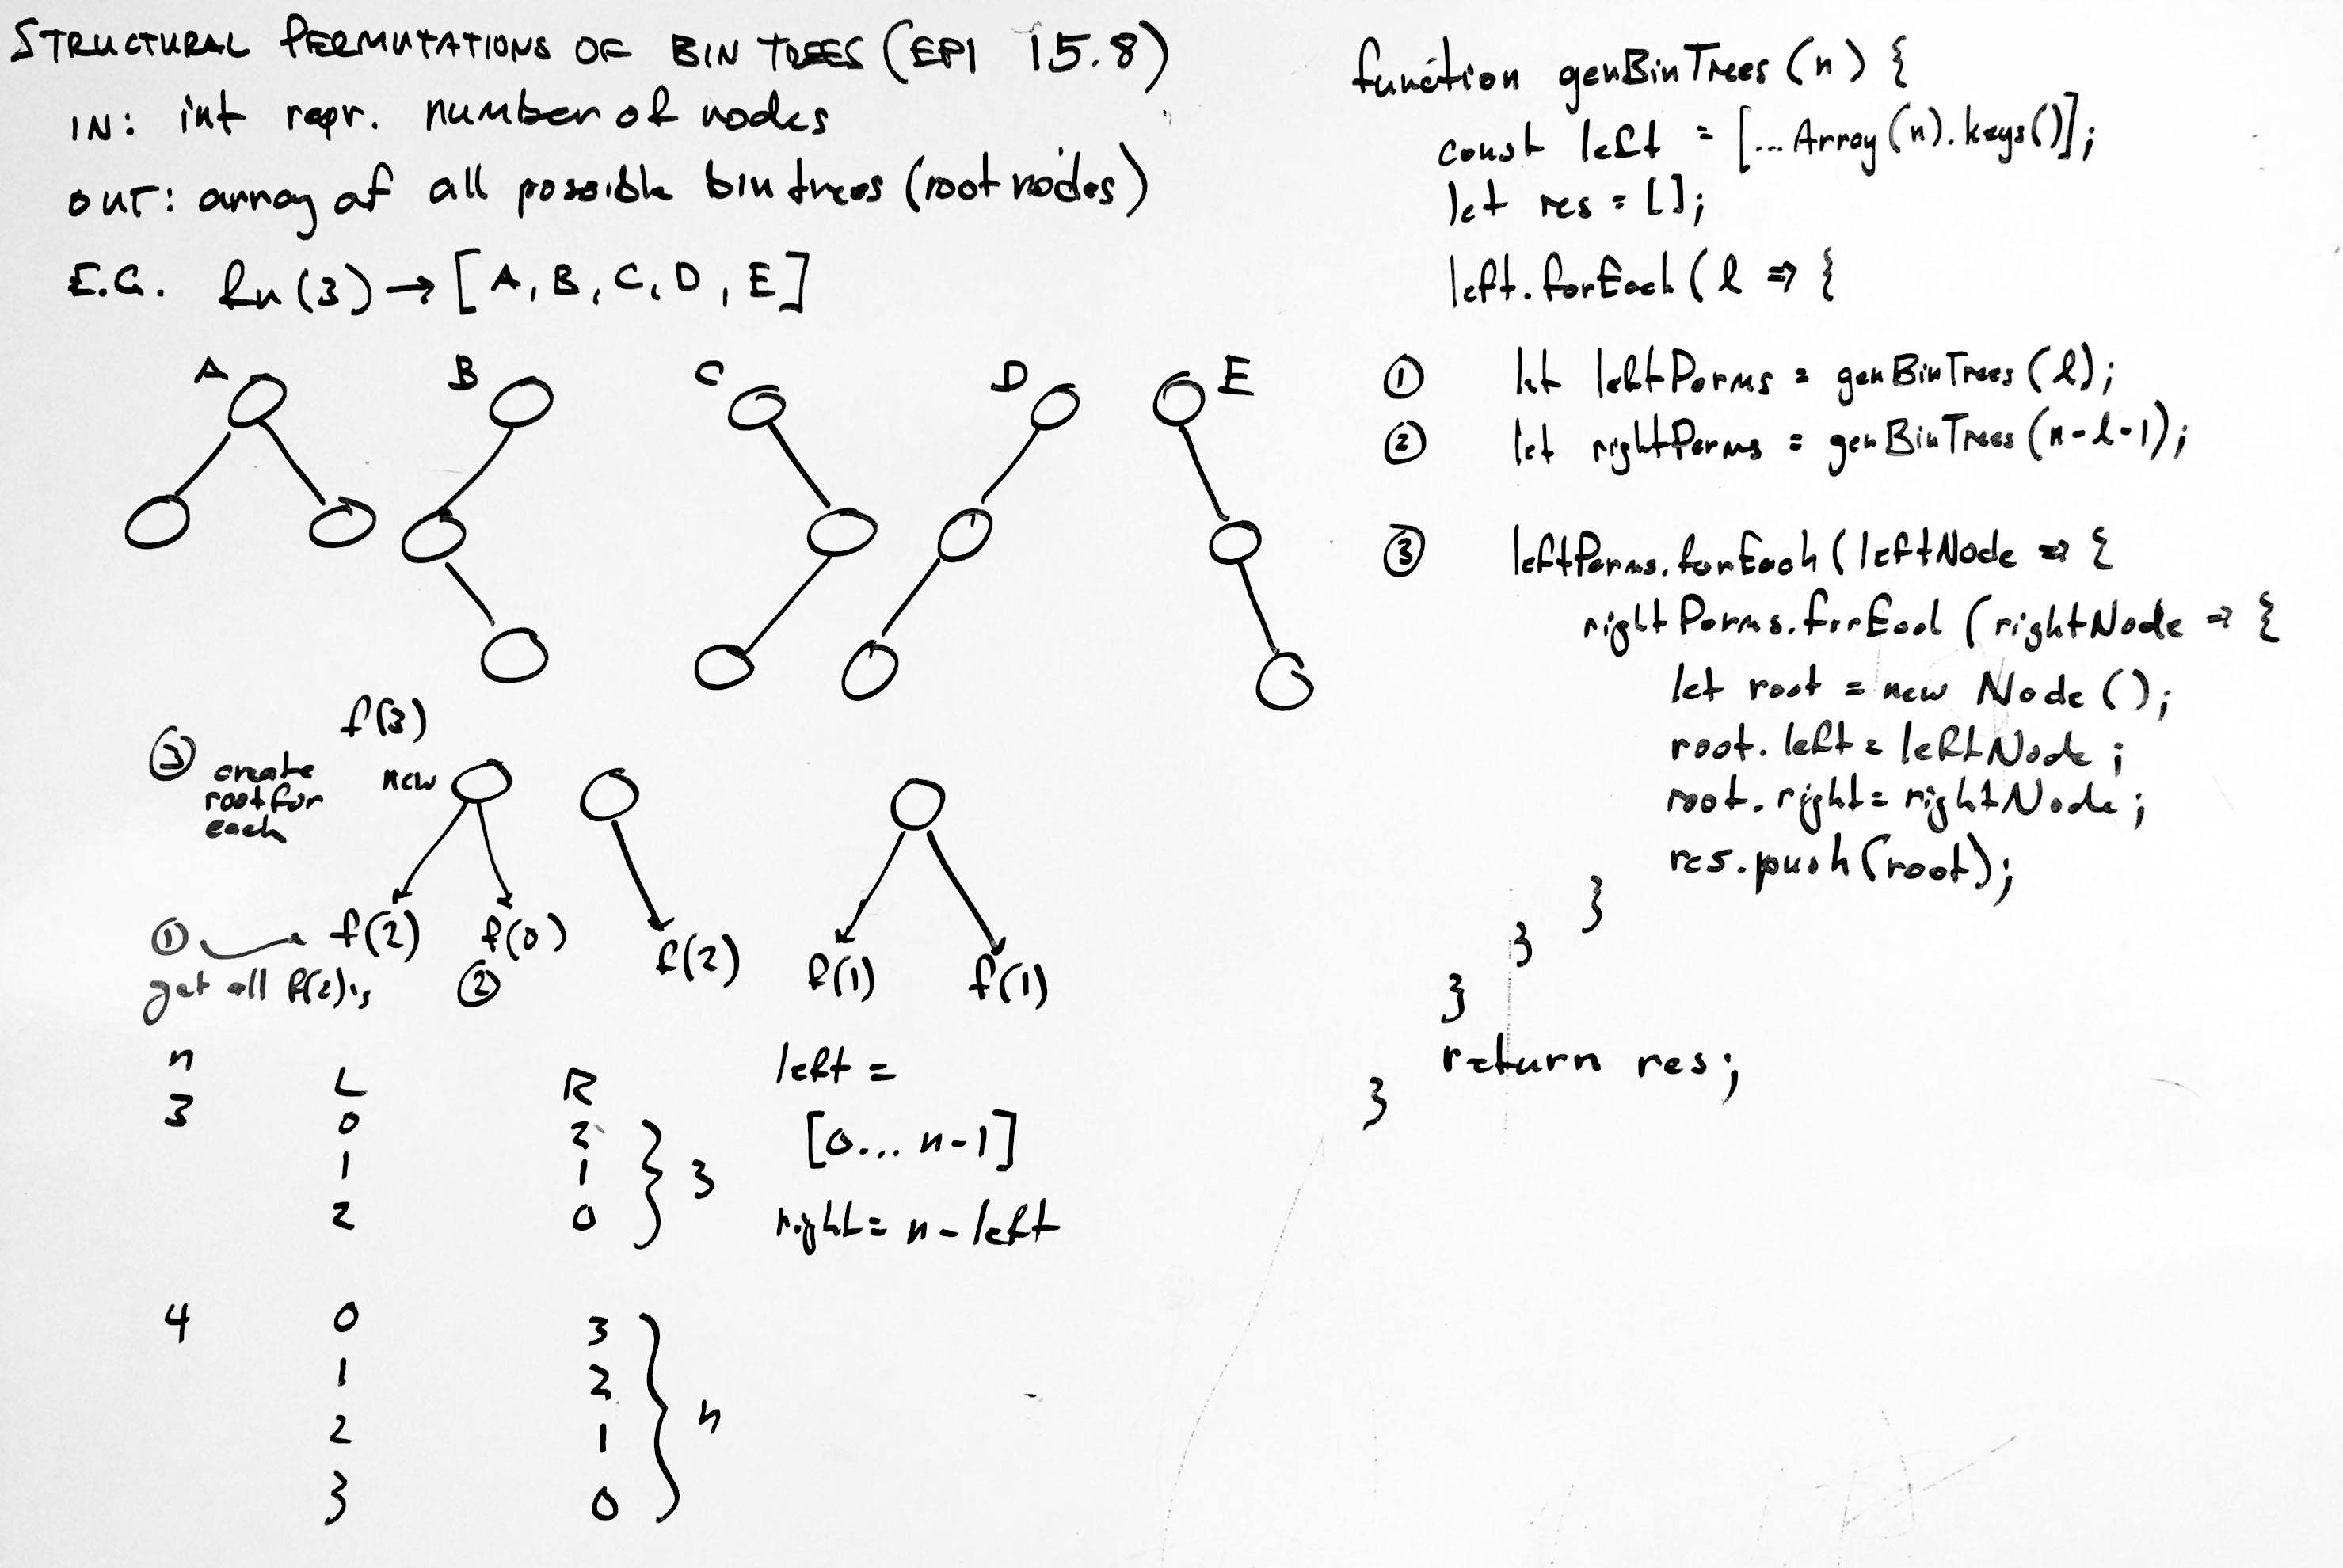 STRUCTURAL PERMUTATIONS OF BIN TREES (EPI 15.8)
IN: int repr. number of nodes
OUT: array of all possible bin trees (root nodes)
E.G. fn(3) → [A, B, C, D, E]
A B C D E
f(3)
③ create root for each
new
① f(2) f(0) f(2) f(1) f(1)
get all f(2)'s ②
n L R
3 0 2
1 1 } 3
2 0
left =
[0... n-1]
right = n - left
4 0 3
1 2
2 1 } n
3 0
function genBinTrees(n) {
const left = [...Array(n).keys()];
let res = [];
left.forEach(l => {
① let leftPerms = genBinTrees(l);
② let rightPerms = genBinTrees(n-l-1);
③ leftPerms.forEach(leftNode => {
rightPerms.forEach(rightNode => {
let root = new Node();
root.left = leftNode;
root.right = rightNode;
res.push(root);
}
}
}
return res;
}